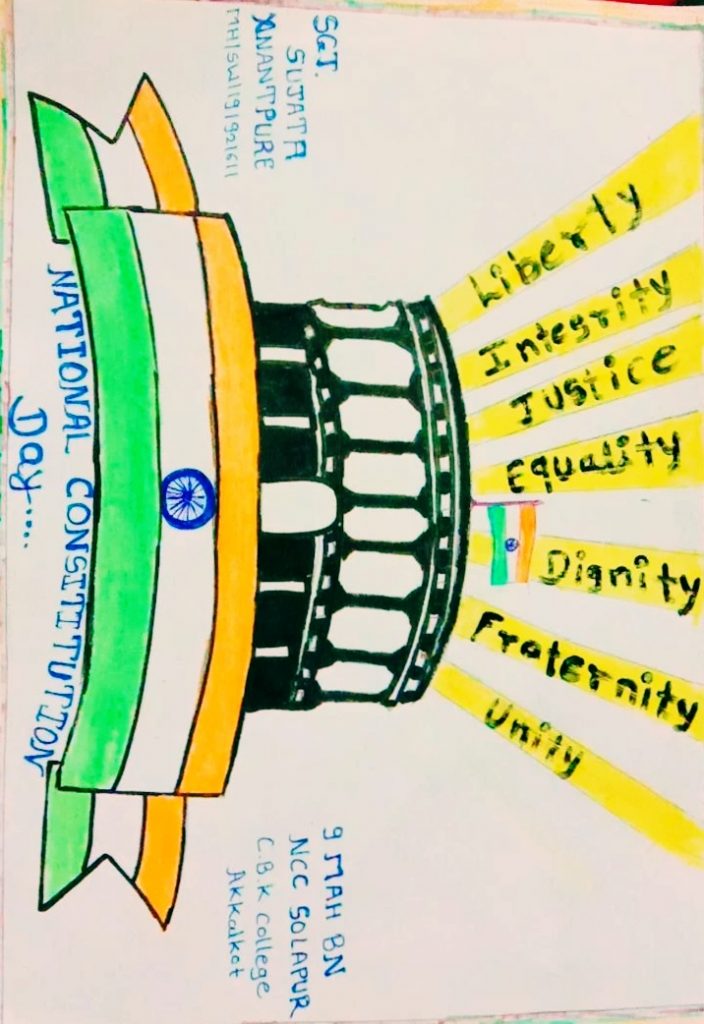 Liberty
Integrity
Justice
Equality
Dignity
Fraternity
Unity
SGT.
SUJATA
ANANTPURE
MH/SW/19/921611
9 MAH BN
NCC SOLAPUR
C.B.K College
Akkalkot
NATIONAL CONSITITUTION
Day.....